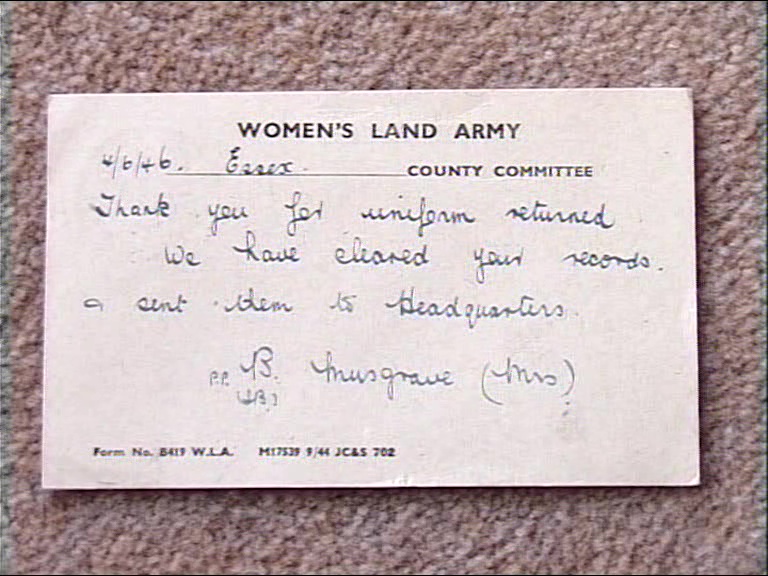 WOMEN'S LAND ARMY
4/6/46. Essex. COUNTY COMMITTEE
Thank you for uniform returned
We have cleared your records.
& sent them to Headquarters.
p.p. B. Musgrave (Mrs)
Form No. B419 W.L.A. M17539 9/44 JC&S 702